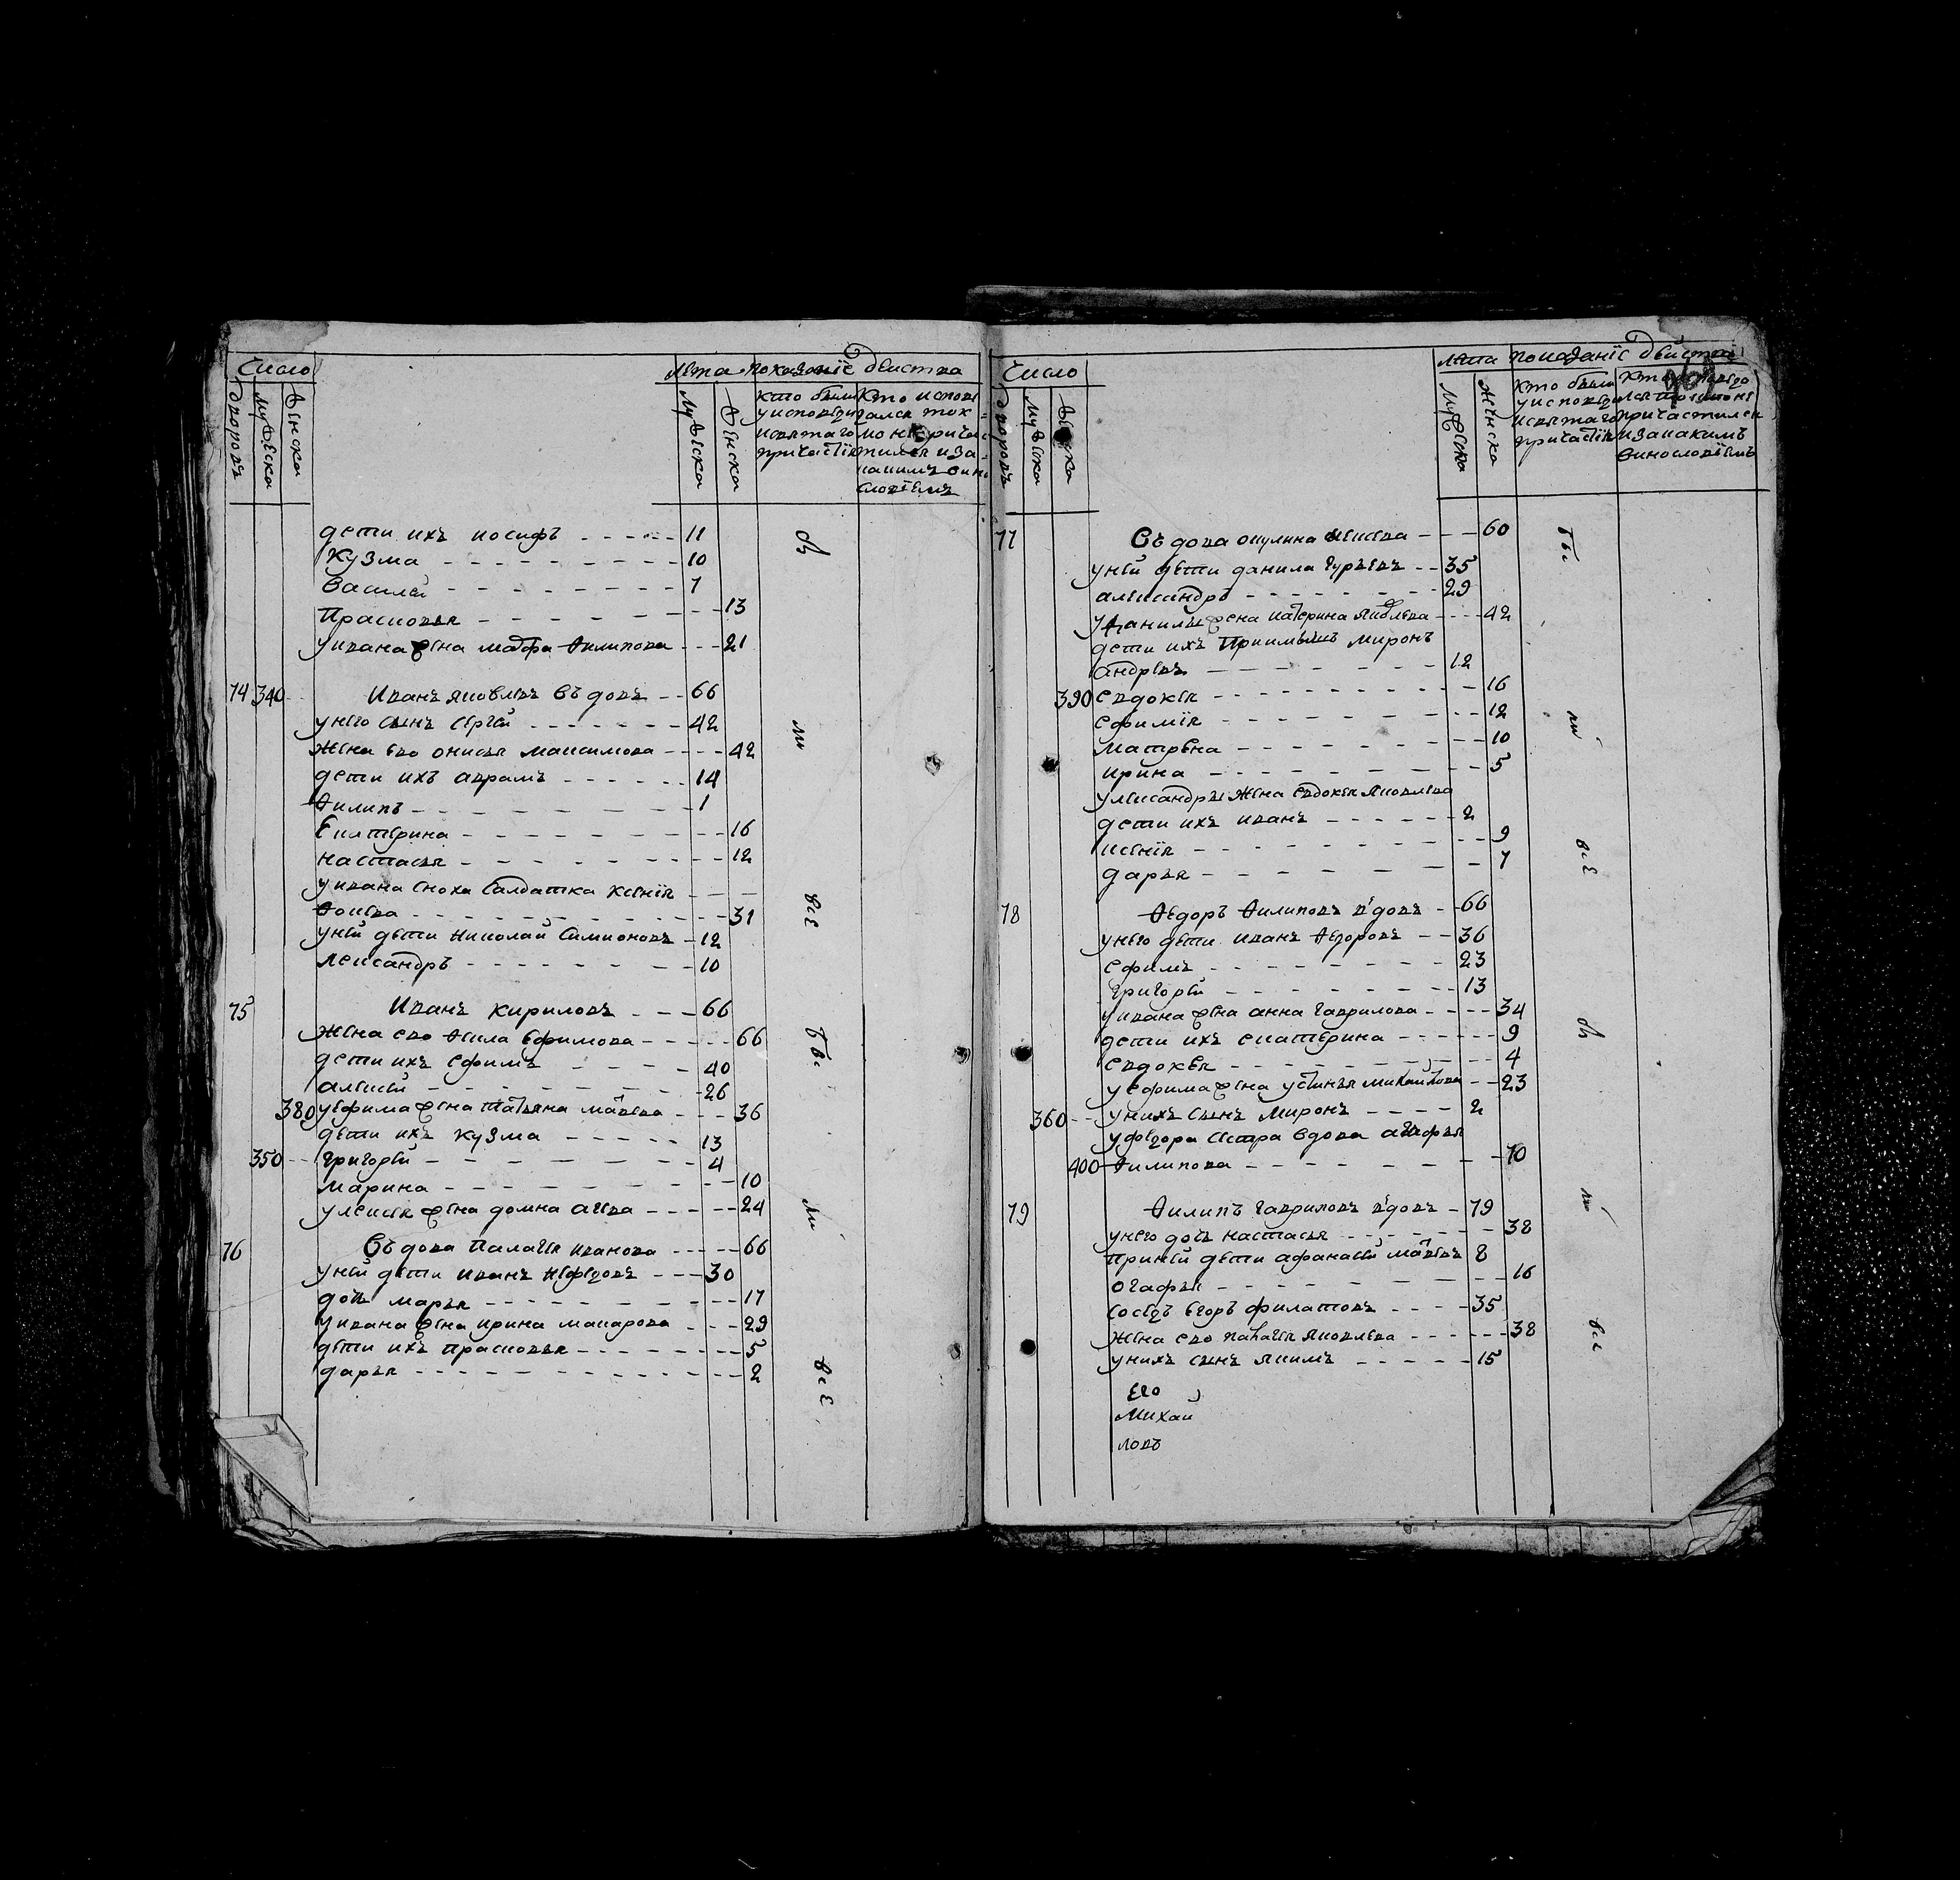 Число
дворовъ
мужеска
женска
Лета
Показание действа
мужеска
женска
кто были
у исповеди
и святаго
причастия
Кто испове
дался ток
мо не причас
тился и за
каким вин
словиемъ
дети ихъ иосифъ - - - - 11
Кузма - - - - 10
Василей - - - - 7
Прасковья - - - - 13
у ивана жена мавфа Филипова - - - 21
74 340 Иванъ яковлевъ въдовъ - - 66
у него сынъ сергей - - - - 42
Жена ево онисья максимова - - - - 42
дети ихъ аврамъ - - - - 14
Филипъ - - - - 1
Екатерина - - - - 16
настасья - - - - 12
у ивана сноха салдатка ксения - - -
Фокева - - - - 31
у ней дети николай Симионовъ - 12
лександръ - - - - 10
75 Иванъ кириловъ - - - 66
Жена ево Фекла Ефимова - - - - - 66
дети ихъ ефимъ - - - - 40
алексей - - - - 26
380 у ефима жена татьяна мавеева - - - 36
дети ихъ кузма - - - - - 13
350 - - григорей - - - - 4
марина - - - - 10
у лексея жена домна агева - - - - - 24
76 Въдова палагея иванова - - - - - 66
у ней дети иванъ нефедовъ - - - 30
дочь марья - - - - 17
у ивана жена ирина макарова - - - 29
дети ихъ прасковья - - - - 5
дарья - - - - 2
бы
ли
все
бы
ли
все
Число
дворовъ
мужеска
женска
Лета
Показание действа
мужеска
женска
Кто были
у исповеди
и святаго
причастия
причастился
и за какимъ
винословиемъ
77 Въдова окулина - - - 60
у ней дети данила гурьевъ - - 35
александръ - - - - 29
у данилы жена катерина яковлева - - - - 42
дети ихъ приимышъ миронъ
андревъ - - - - 12
390 евдокея - - - - 16
ефимия - - - - 12
матрена - - - - 10
ирина - - - - 5
у лександры жена евдокея яковлева
дети ихъ иванъ - - - - 2
ксения - - - - 9
дарья - - - - 7
78 Федоръ Филиповъ вдовъ - - 66
у него дети иванъ Федоровъ - - 36
ефимъ - - - - 23
григорей - - - - 13
у ивана жена анна гаврилова - - - - 34
дети ихъ екатерина - - - - 9
евдокея - - - - 4
у ефима жена устинья михайлова - - 23
360 - - у нихъ сынъ миронъ - - - - 2
у федора сестра вдова агафья
400 Филипова - - - - 70
79 Филипъ гавриловъ вдовъ - 79
у него дочь настасья - - - - 38
при ней дети афанасей мавевъ 8
огафья - - - - 16
соседъ егоръ филатовъ - - - - 35
жена ево палагея яковлева - - - - 38
у нихъ сынъ якимъ - - - - - 15
его
михай
ловъ
бы
ли
все
бы
ли
все